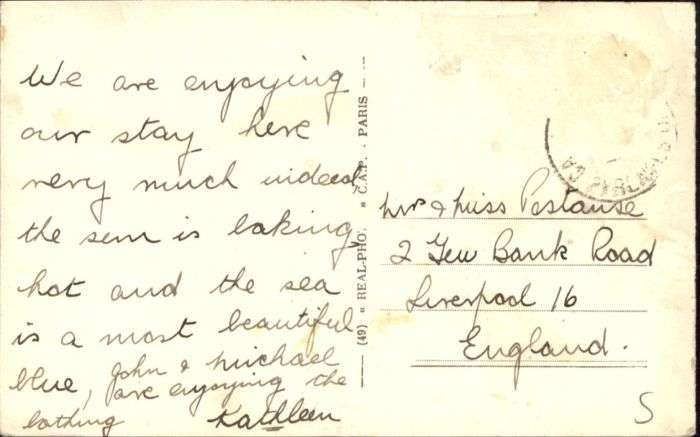 We are enjoying
our stay here
very much indeed,
the sun is baking
hot and the sea
is a most beautiful
blue, John & Michael
are enjoying the
bathing Kathleen
(49) « REAL-PHO. » C.A.P. - PARIS
Mr & Miss
2 Yew Bank Road
Liverpool 16
England.
5